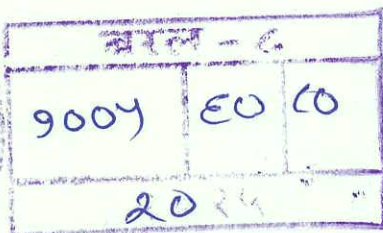 बरल - ८
१००५ ६० ८०
२०२५